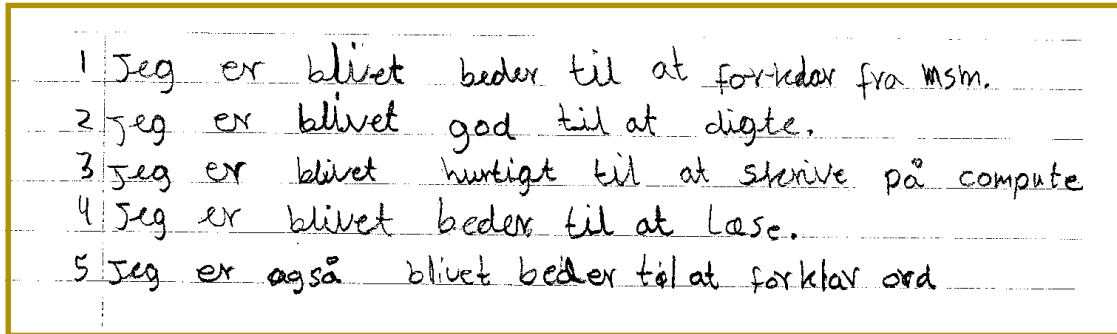 1 Jeg er blivet beder til at forkdar fra msm.
2 Jeg er blivet god til at digte.
3 Jeg er blivet hurtigt til at skrive på compute
4 Jeg er blivet beder til at Læse.
5 Jeg er også blivet beder til at forklar ord